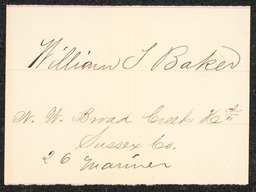 William S Baker
N. W. Broad Creek Hd
Sussex Co.
26 Mariner